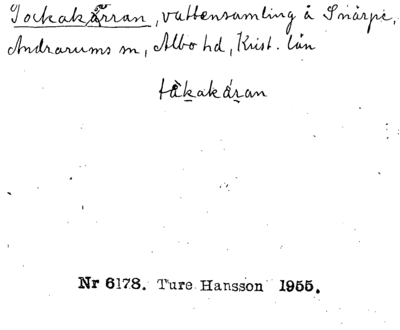 Tockakärran, vattensamling å Snärpe,
Andrarums sn, Albo hd, Krist. län
tåkakáran
Nr 6178. Ture Hansson 1955.